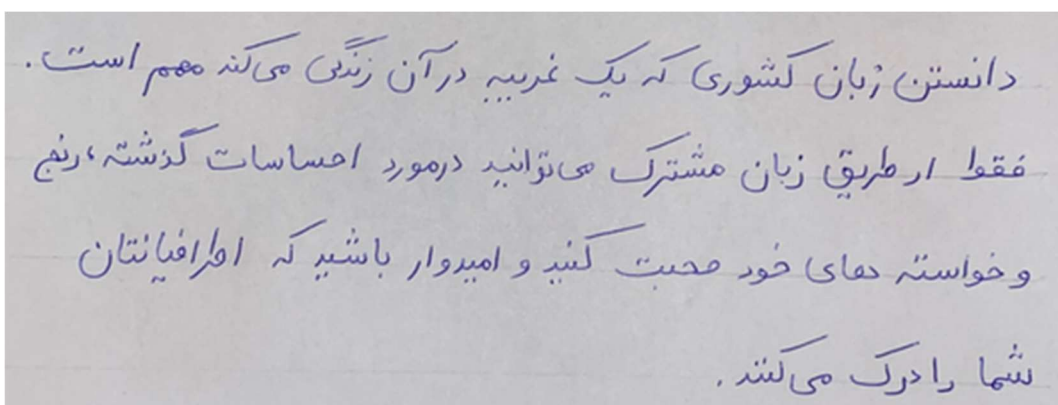 دانستن زبان کشوری که یک غریبه در آن زندگی می‌کند مهم است.
فقط از طریق زبان مشترک می‌توانید درمورد احساسات گذشته، رنج
و خواسته های خود صحبت کنید و امیدوار باشید که اطرافیانتان
شما را درک می‌کنند.